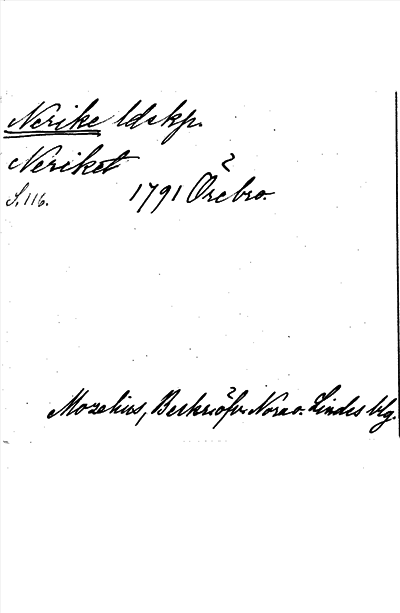 Nerike ldskp.
Neriket
S. 116. 1791 Örebro.
Mozelius, Beskr. öfv. Nora o. Lindes blg.